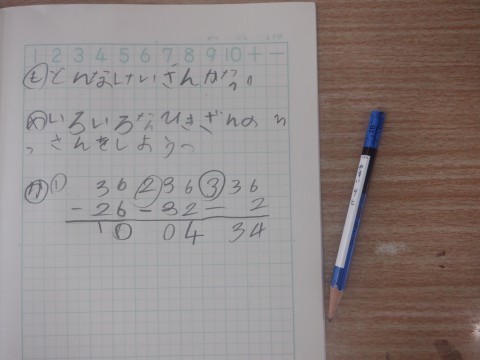 1 2 3 4 5 6 7 8 9 10 + −
も どんなけいさんかな。
め いろいろなひきざんの ひ
っさんをしよう。
か ① 36 ② 36 ③ 36
−26 −32 − 2
10 04 34